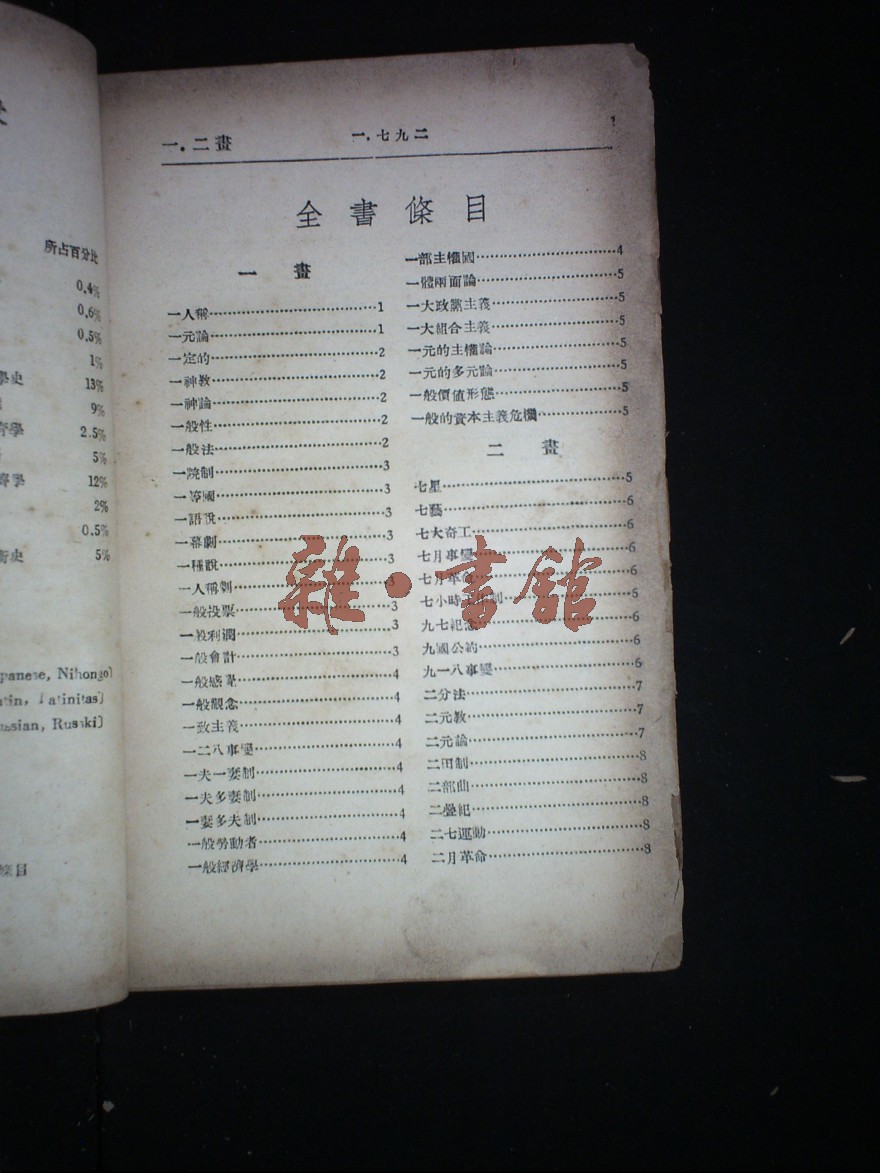 所占百分比
0.4%
0.6%
0.5%
1%
學史 13%
9%
濟學 2.5%
5%
濟學 12%
2%
0.5%
術史 5%
panese, Nihongo)
tin, Latinitas)
ussian, Russki)
條目
一.二畫 一.七九二 1
全書條目
一畫
一人稱 1
一元論 1
一定的 2
一神教 2
一神論 2
一般性 2
一般法 2
一院制 3
一等國 3
一語說 3
一幕劇 3
一種說 3
一人稱劇 3
一般投票 3
一般利潤 3
一般會計 3
一般感覺 4
一般觀念 4
一致主義 4
一二八事變 4
一夫一妻制 4
一夫多妻制 4
一妻多夫制 4
一般勞動者 4
一般經濟學 4
一部主權國 4
一體兩面論 5
一大政黨主義 5
一大組合主義 5
一元的主權論 5
一元的多元論 5
一般價值形態 5
一般的資本主義危機 5
二畫
七星 5
七藝 6
七大奇工 6
七月事變 6
七月革命 6
七小時工作制 5
九七紀念 6
九國公約 6
九一八事變 6
二分法 7
二元教 7
二元論 7
二田制 8
二部曲 8
二疊紀 8
二七運動 8
二月革命 8
雜·書館